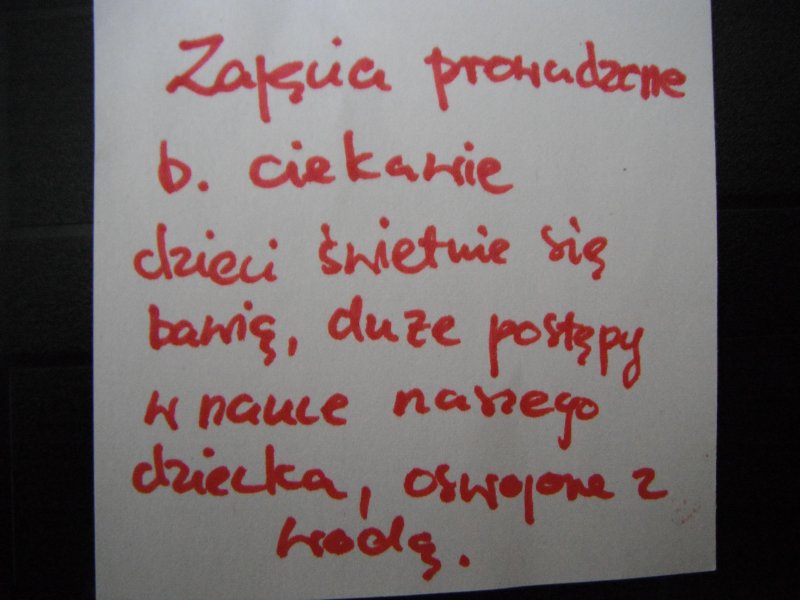 Zajęcia prowadzone
b. ciekawie
dzieci świetnie się
bawią, duże postępy
w nauce naszego
dziecka, oswojone z
wodą.